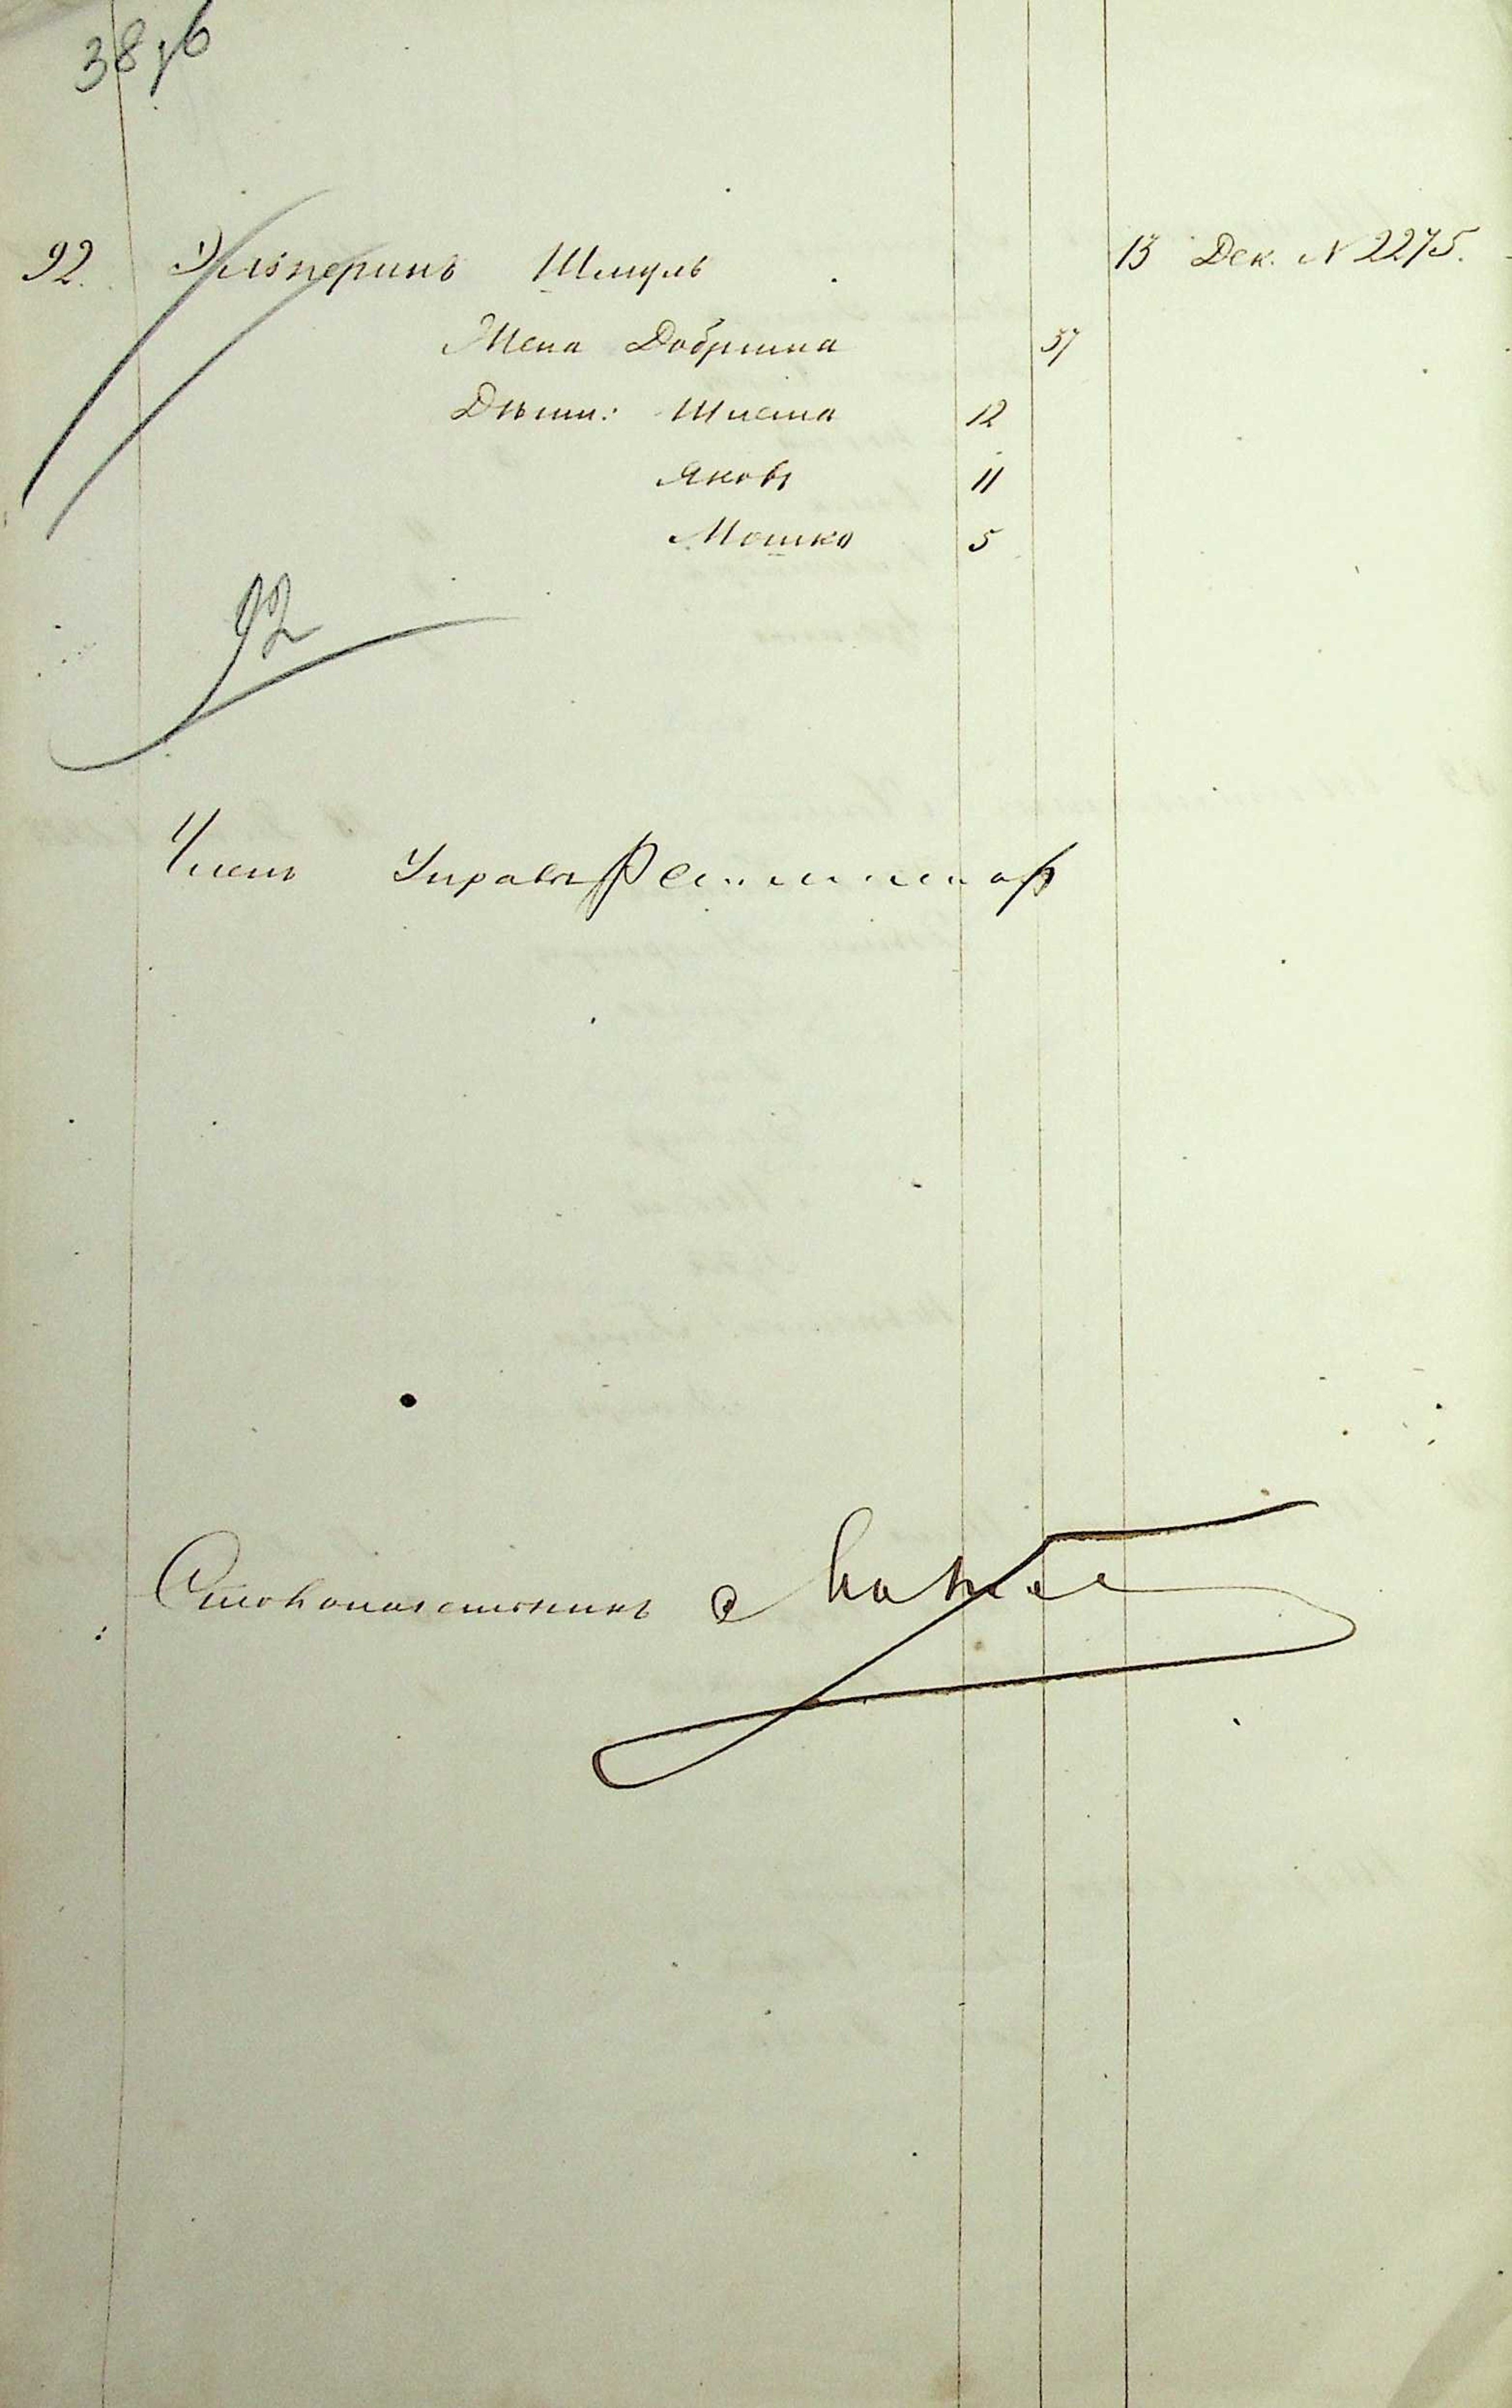 38 об
92. Эльперинъ Шмуль 13 Дек. N 2275.
Жена Добришa 37
Дѣти: Шлема 12
Яковъ 11
Мошко 5
92
Членъ Управы
Столоначальникъ